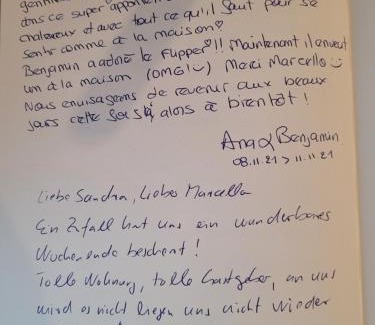 dans ce super appartement
chaleureux et avec tout ce qu'il faut pour se
sentir comme à la maison!
Benjamin a adoré le Flipper!!! Maintenant il en veut
un à la maison (OMG!) Merci Marcello
Nous envisageons de revenir aux beaux
jours cette fois, alors à bientôt!
Ana & Benjamin
08.11.21 > 11.11.21
Liebe Sandra, Lieber Marcello
Ein Zufall hat uns ein wunderbares
Wochenende beschert!
Tolle Wohnung, tolle Gastgeber, an uns
wird es nicht liegen uns nicht wieder